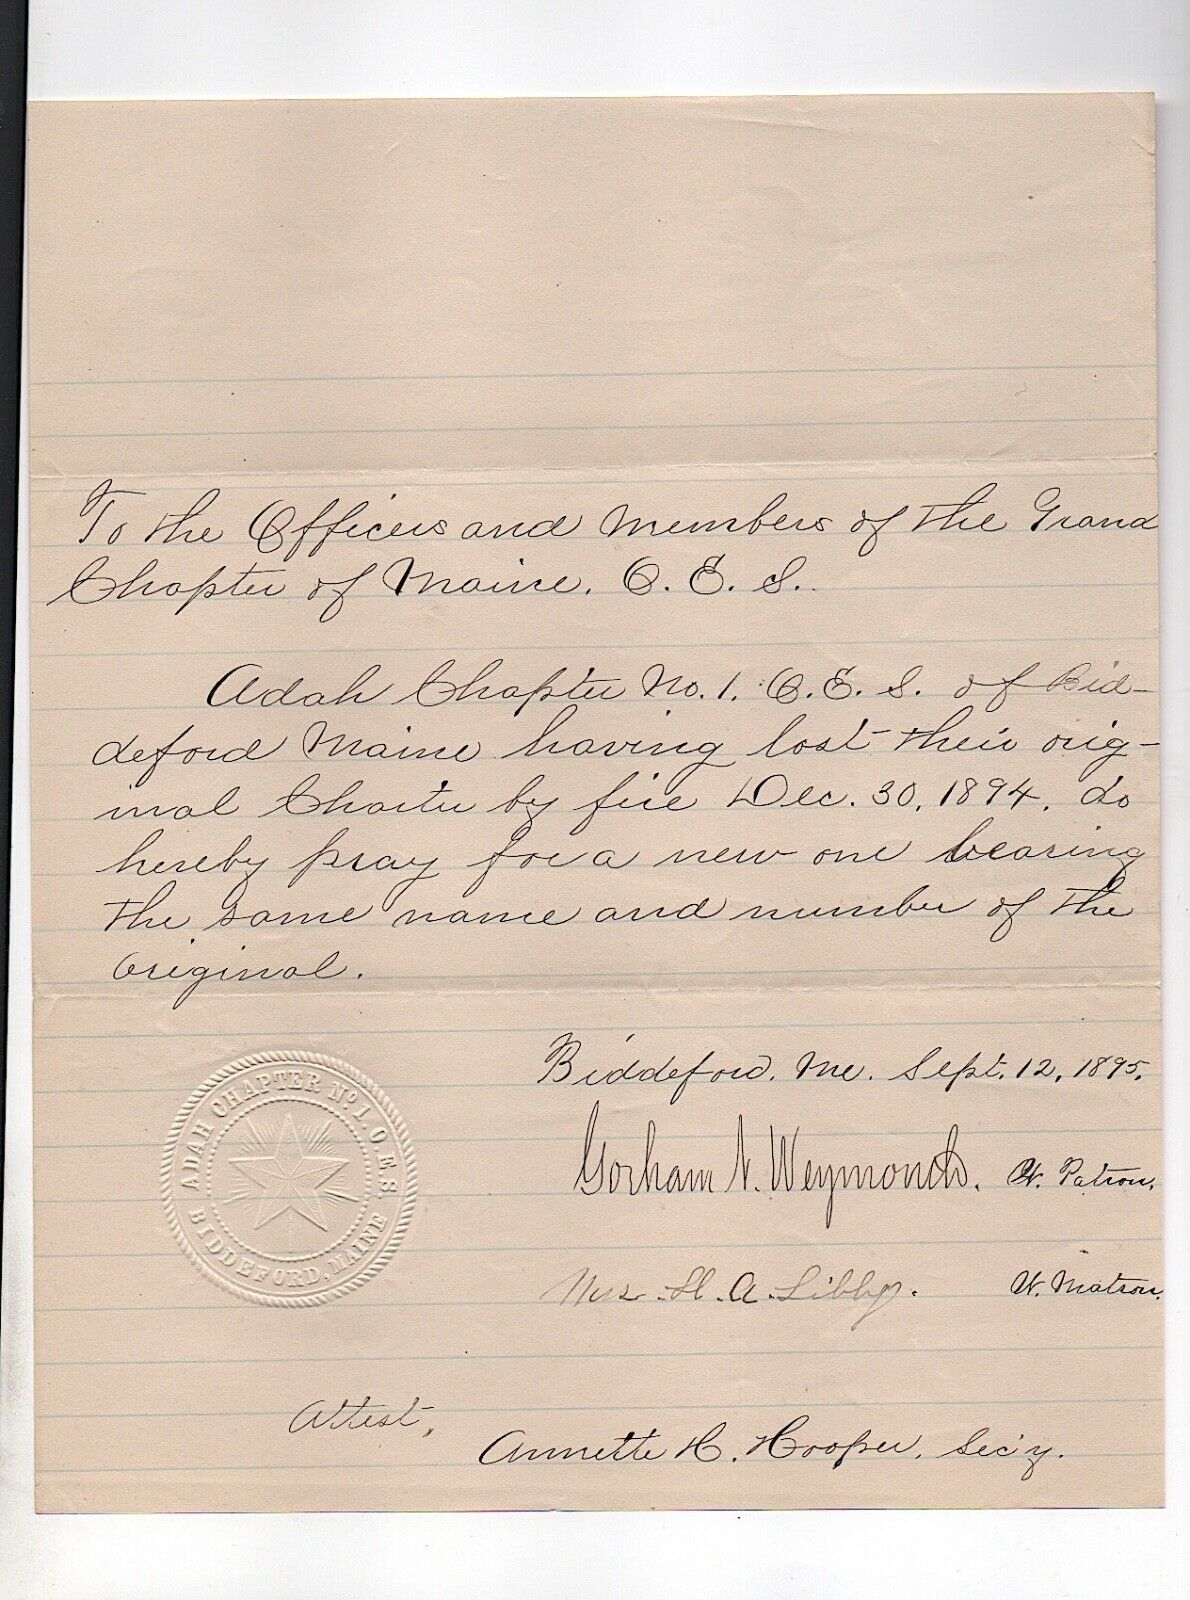 To the Officers and Members of the Grand
Chapter of Maine. O. E. S.
Adah Chapter No. 1. O. E. S. of Bid-
deford Maine having lost their orig-
inal Charter by fire Dec. 30, 1894, do
hereby pray for a new one bearing
the same name and number of the
original.
Biddeford, Me. Sept. 12, 1895.
ADAH CHAPTER No. 1, O.E.S
BIDDEFORD, MAINE
Gorham N. Weymouth. W. Patron.
Mrs. H. A. Libby. W. Matron.
Attest,
Annette H. Hooper, Sec'y.